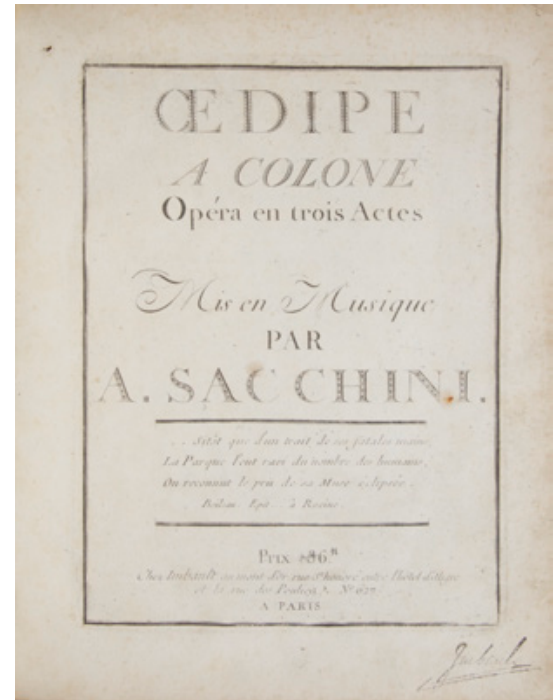 ŒDIPE
A COLONE
Opéra en trois Actes
Mis en Musique
PAR
A. SACCHINI.
... Sitôt que d'un trait de ses fatales mains,
La Parque l'eut rayé du nombre des humains,
On reconnut le prix de sa Muse éclipsée.
Boileau Epit ... à Racine.
Prix
Chez Imbault au mont d'or rue St honoré entre l'hôtel d'Aligre
et la rue des Poulies, No 627
A PARIS
Imbault